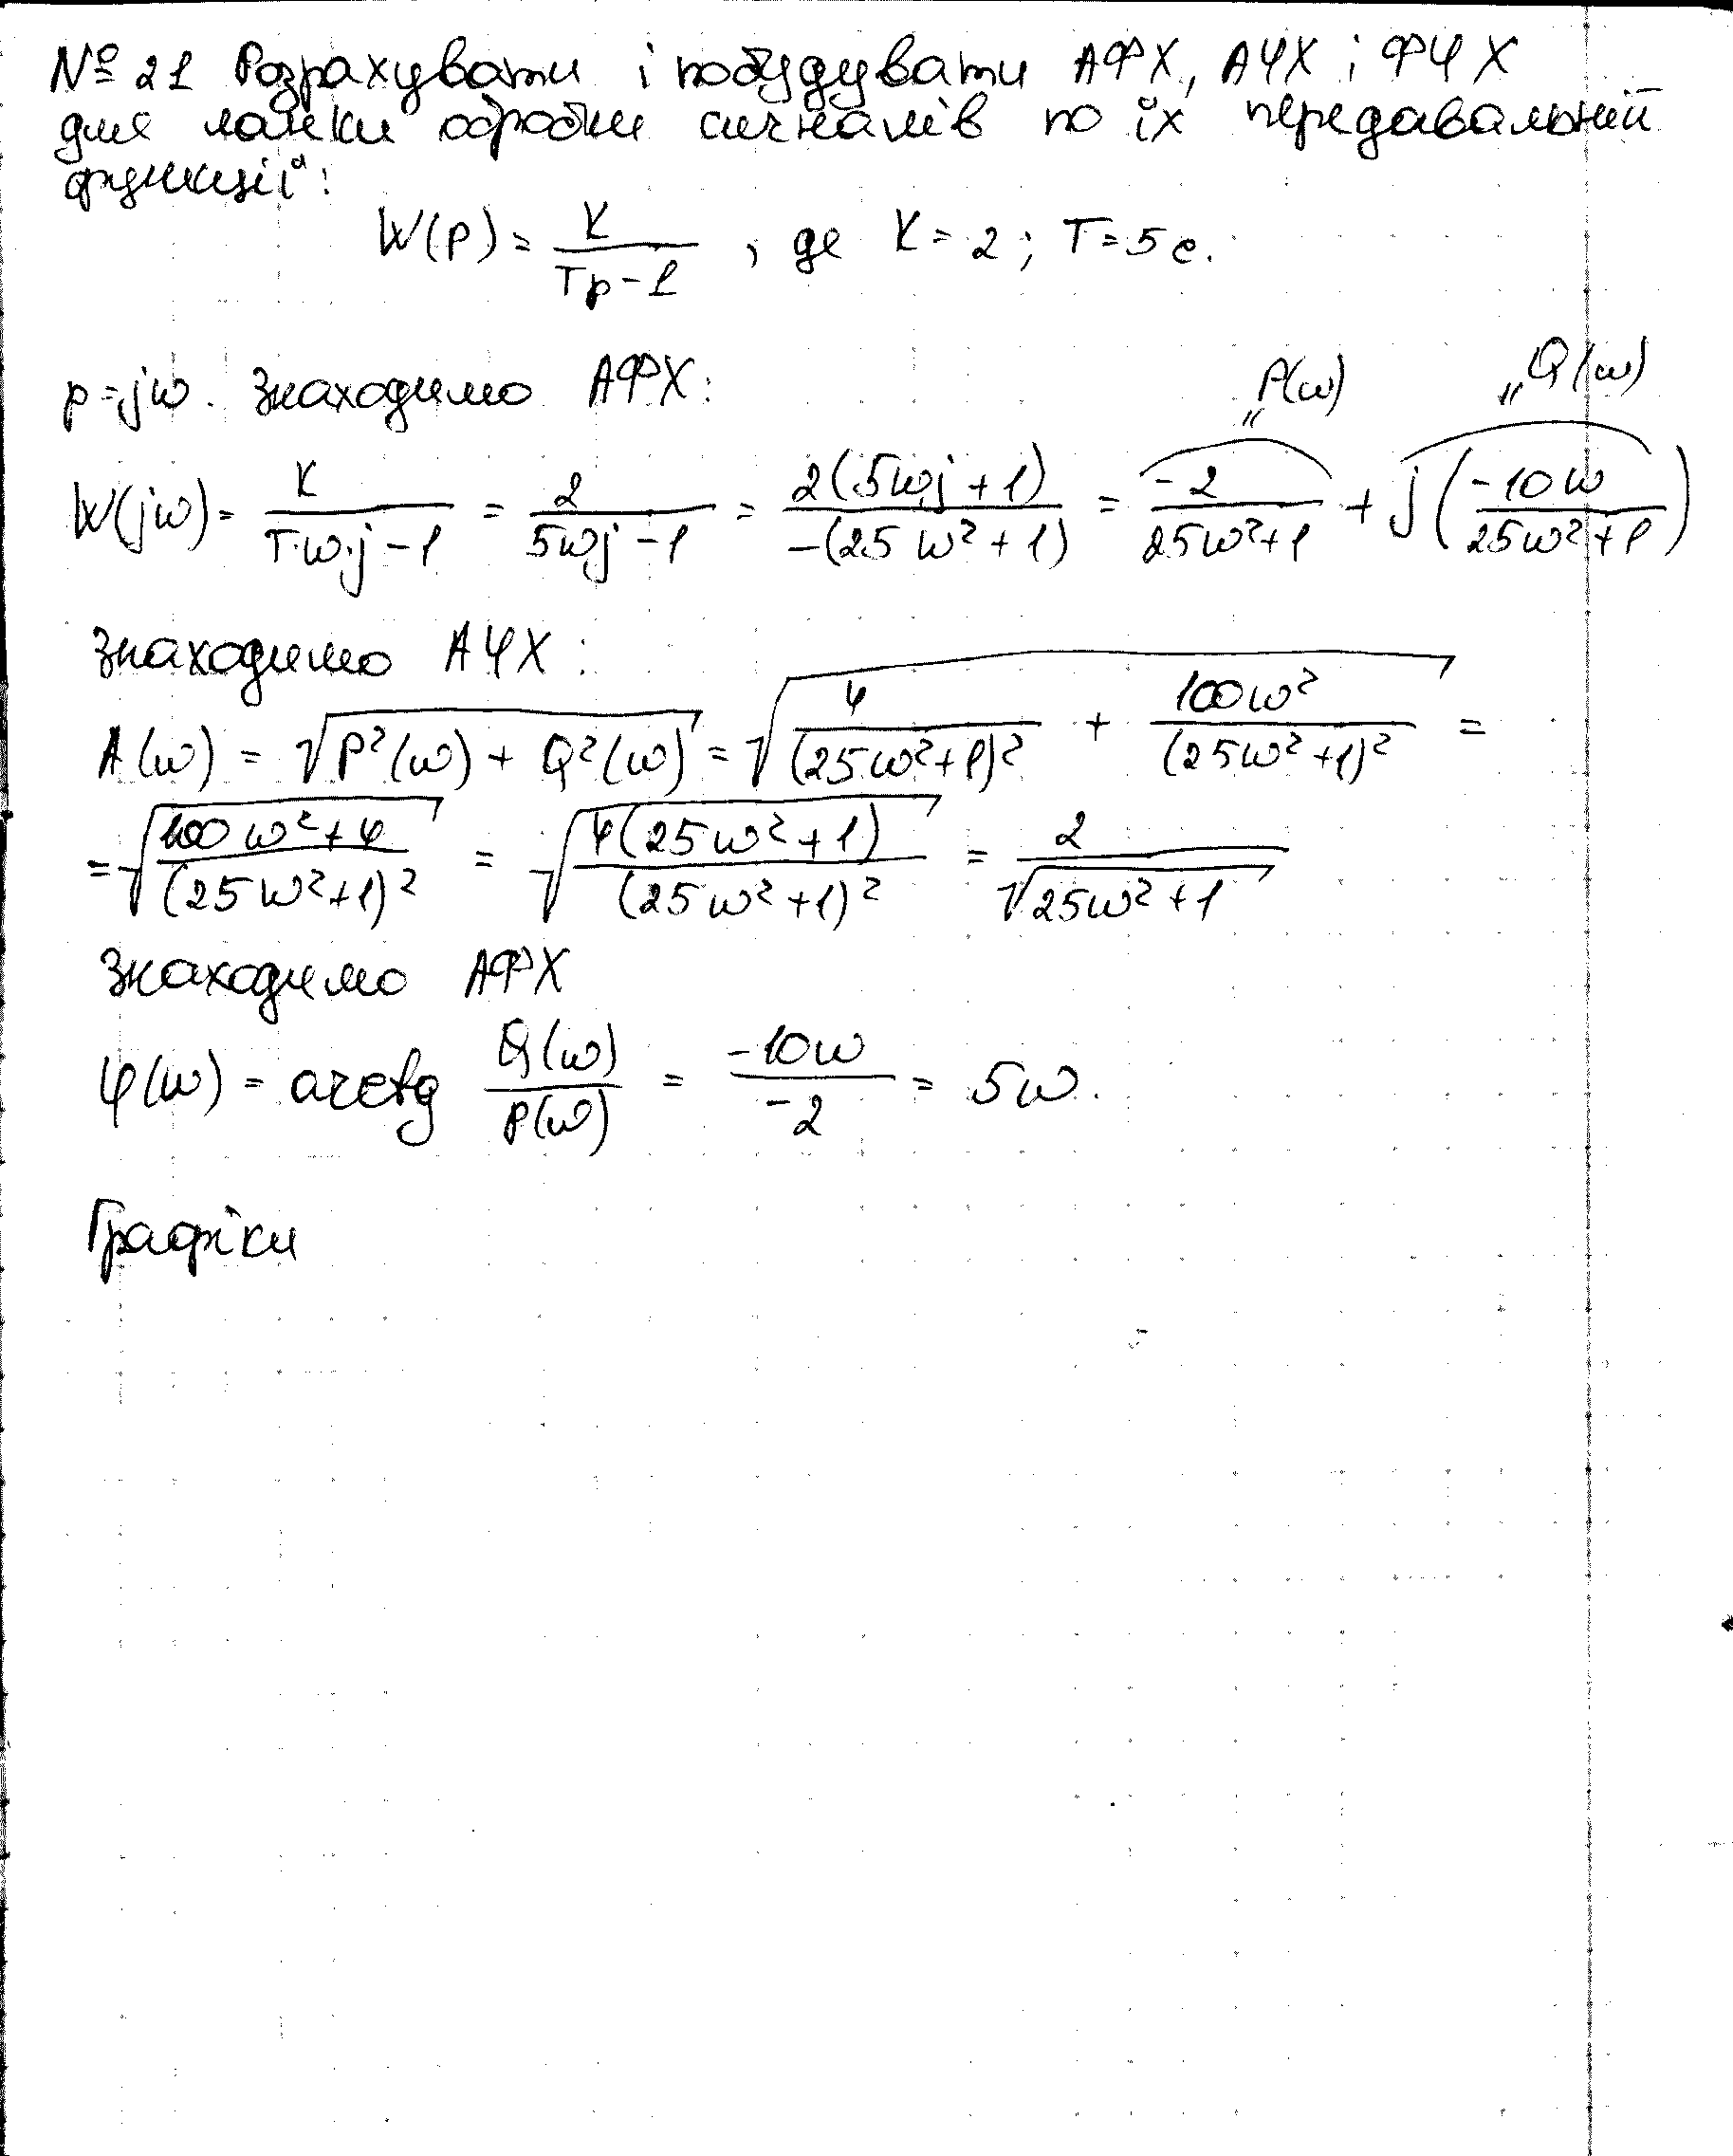 № 21 Розрахувати і побудувати АФХ, АЧХ і ФЧХ
для ланки обробки сигналів по їх передавальній
функції:
W(p) = K / (Tp - 1) , де K = 2; T = 5 с.
p = jω. Знаходимо АФХ:
P(ω) Q(ω)
W(jω) = K / (T·ω·j - 1) = 2 / (5ωj - 1) = 2(5ωj + 1) / -(25ω² + 1) = -2 / (25ω² + 1) + j(-10ω / (25ω² + 1))
Знаходимо АЧХ:
A(ω) = √(P²(ω) + Q²(ω)) = √(4 / (25ω² + 1)² + 100ω² / (25ω² + 1)²) =
= √((100ω² + 4) / (25ω² + 1)²) = √(4(25ω² + 1) / (25ω² + 1)²) = 2 / √(25ω² + 1)
Знаходимо АФХ
φ(ω) = arctg Q(ω) / P(ω) = -10ω / -2 = 5ω.
Графіки